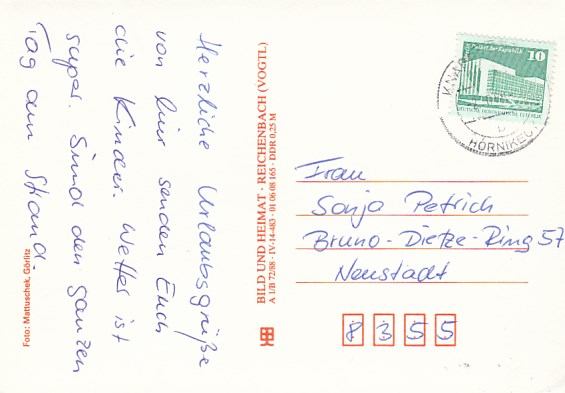 Herzliche Urlaubsgrüße
von hier senden Euch
die Kinder. Wetter ist
super. Sind den ganzen
Tag am Strand.
Foto: Mattuschek, Görlitz
BILD UND HEIMAT · REICHENBACH (VOGTL)
A 1/B 72/88 · IV-14-483 · 01 06 08 165 · DDR 0,25 M
Palast der Republik
10
DEUTSCHE DEMOKRATISCHE REPUBLIK
Frau
Sonja Petrich
Bruno-Dietze-Ring 57
Neustadt
8355